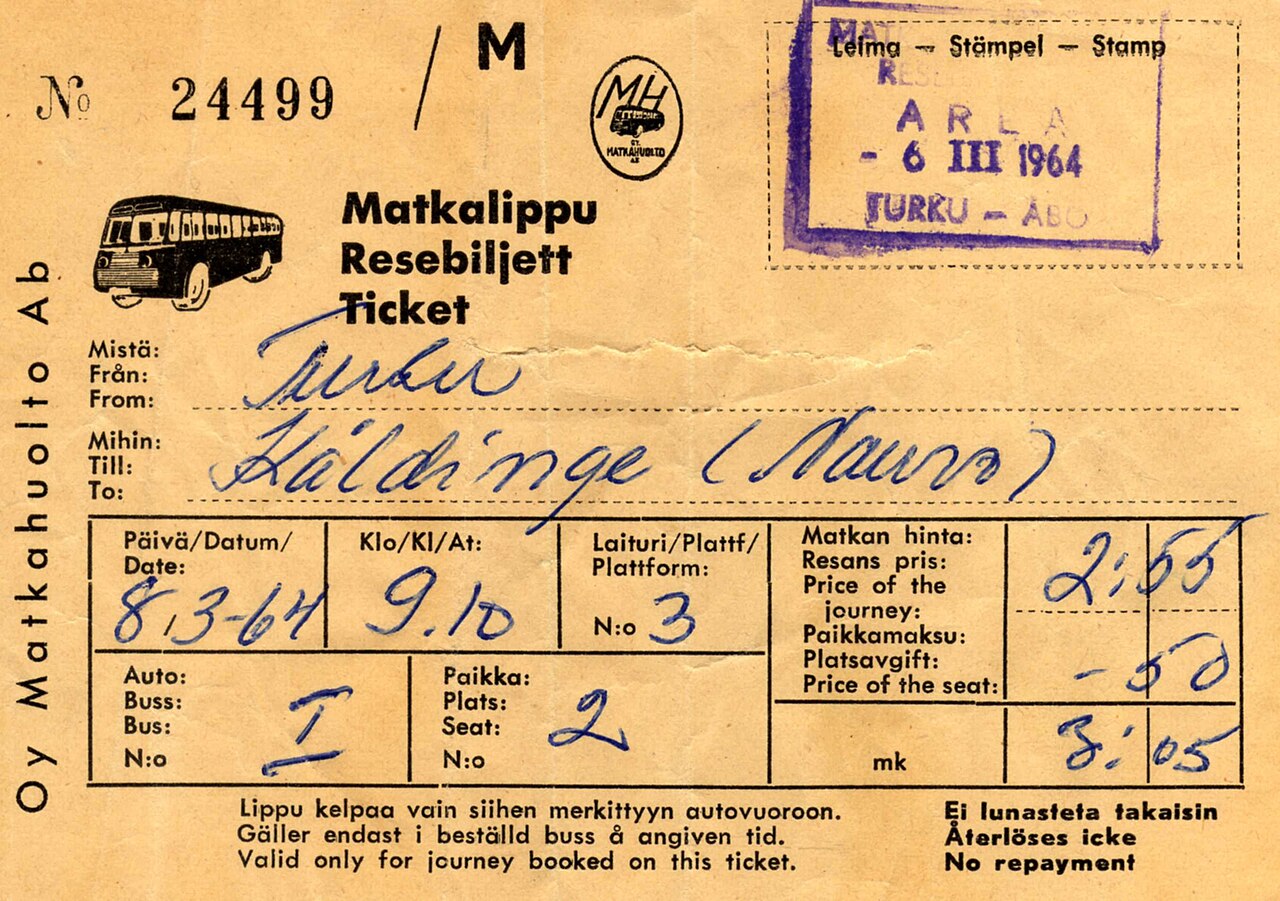 / M
No 24499
MH
OY. MATKAHUOLTO AB
Leima — Stämpel — Stamp
ARLA
- 6 III 1964
TURKU - ÅBO
Matkalippu
Resebiljett
Ticket
Oy Matkahuolto Ab
Mistä:
Från:
From:
Turku
Mihin:
Till:
To:
Käldinge (Nauvo)
Päivä/Datum/
Date:
8.3-64
Klo/Kl/At:
9.10
Laituri/Plattf/
Plattform:
N:o 3
Matkan hinta:
Resans pris:
Price of the
journey:
2:55
Paikkamaksu:
Platsavgift:
Price of the seat:
-50
Auto:
Buss:
Bus:
N:o
I
Paikka:
Plats:
Seat:
N:o
2
mk
3:05
Lippu kelpaa vain siihen merkittyyn autovuoroon.
Gäller endast i beställd buss å angiven tid.
Valid only for journey booked on this ticket.
Ei lunasteta takaisin
Återlöses icke
No repayment